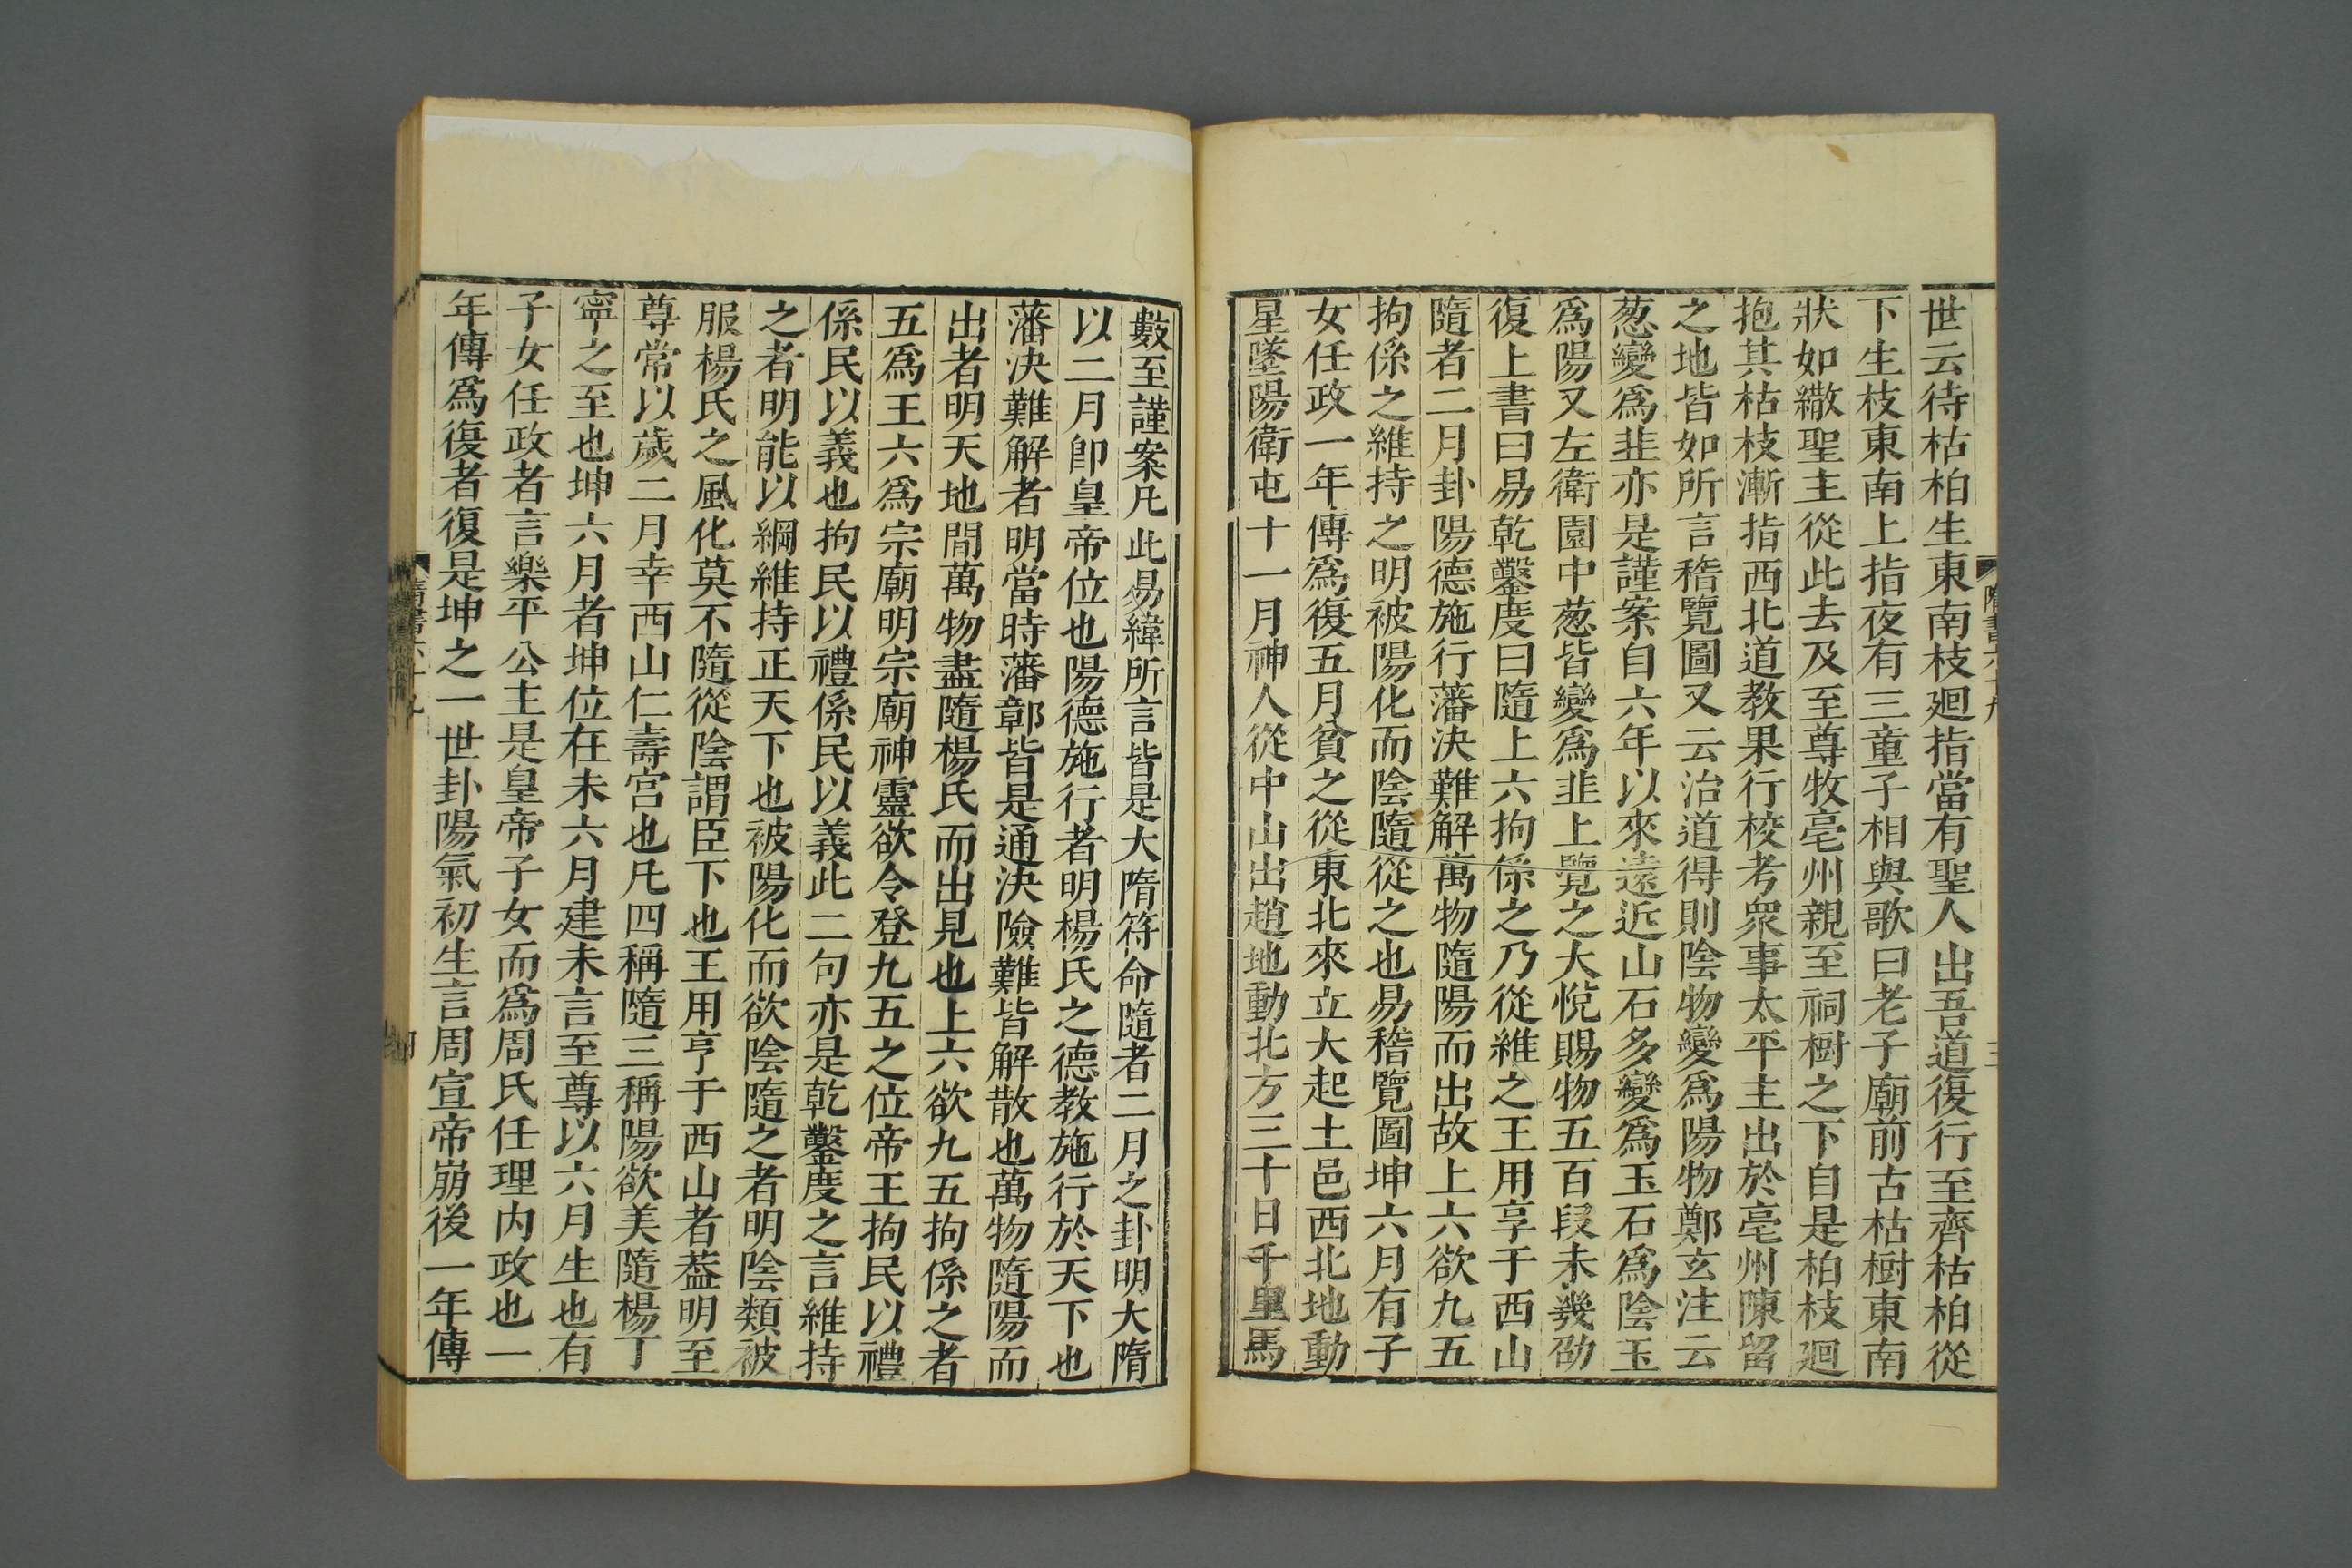 世云待枯柏生東南枝廻指當有聖人出吾道復行至齊枯柏從
下生枝東南上指夜有三童子相與歌曰老子廟前古枯樹東南
狀如繖聖主從此去及至尊牧亳州親至祠樹之下自是柏枝廻
抱其枯枝漸指西北道教果行校考衆事太平主出於亳州陳留
之地皆如所言稽覽圖又云治道得則陰物變爲陽物鄭玄注云
葱變爲韭亦是謹案自六年以來遠近山石多變爲玉石爲陰玉
爲陽又左衛園中葱皆變爲韭上覽之大悅賜物五百段未幾劭
復上書曰易乾鑿度曰隨上六拘係之乃從維之王用享于西山
隨者二月卦陽德施行藩決難解萬物隨陽而出故上六欲九五
拘係之維持之明被陽化而陰隨從之也易稽覽圖坤六月有子
女任政一年傳爲復五月貧之從東北來立大起土邑西北地動
星墜陽衛屯十一月神人從中山出趙地動北方三十日千里馬
數至謹案凡此易緯所言皆是大隋符命隨者二月之卦明大隋
以二月卽皇帝位也陽德施行者明楊氏之德教施行於天下也
藩決難解者明當時藩鄣皆是通決險難皆解散也萬物隨陽而
出者明天地間萬物盡隨楊氏而出見也上六欲九五拘係之者
五爲王六爲宗廟明宗廟神靈欲令登九五之位帝王拘民以禮
係民以義也拘民以禮係民以義此二句亦是乾鑿度之言維持
之者明能以綱維持正天下也被陽化而欲陰隨之者明陰類被
服楊氏之風化莫不隨從陰謂臣下也王用亨于西山者葢明至
尊常以歲二月幸西山仁壽宮也凡四稱隨三稱陽欲美隨楊丁
寧之至也坤六月者坤位在未六月建未言至尊以六月生也有
子女任政者言樂平公主是皇帝子女而爲周氏任理内政也一
年傳爲復者復是坤之一世卦陽氣初生言周宣帝崩後一年傳